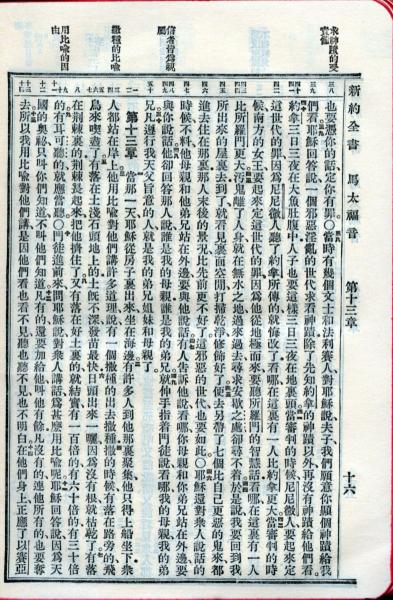 求神蹟的受責備
信者皆為親屬
撒種的比喻
用比喻的因由
新約全書 馬太福音 第十三章 十六
也要憑你的話定你有罪〇當時有幾個文士和法利賽人對耶穌說夫子我們願意你顯個神蹟給我
們看耶穌回答說一個邪惡淫亂的世代求看神蹟除了先知約拿的神蹟以外再沒有神蹟給他們看
約拿三日三夜在大魚肚腹中人子也要這樣三日三夜在地裏面當審判的時候尼尼微人要起來定
這世代的罪因為尼尼微人聽了約拿所傳的就悔改了看哪在這裏有一人比約拿更大當審判的時
候南方的女王要起來定這世代的罪因為他從地極而來要聽所羅門的智慧話看哪在這裏有一人
比所羅門更大污鬼離了人身就在無水之地過來過去尋求安歇之處卻尋不着於是說我要回到我
所出來的屋裏去到了就看見裏面空閒打掃乾淨修飾好了便去另帶了七個比自己更惡的鬼來都
進去住在那裏那人末後的景況比先前更不好了這邪惡的世代也要如此〇耶穌還對衆人說話的
時候不料他母親和他弟兄站在外邊要與他說話有人告訴他說看哪你母親和你弟兄站在外邊要
與你說話他卻回答那人說誰是我的母親誰是我的弟兄就伸手指着門徒說看哪我的母親我的弟
兄凡遵行我天父旨意的人就是我的弟兄姐妹和母親了
第十三章 當那一天耶穌從房子裏出來坐在海邊有許多人到他那裏聚集他只得上船坐下衆
人都站在岸上他用比喻對他們講許多道理說有一個撒種的出去撒種撒的時候有落在路旁的飛
鳥來喫盡了有落在土淺石頭地上的土既不深發苗最快日頭出來一曬因為沒有根就枯乾了有落
在荊棘裏的荊棘長起來把他擠住了又有落在好土裏的就結實有一百倍的有六十倍的有三十倍
的有耳可聽的就應當聽〇門徒進前來問耶穌說對衆人講話為甚麼用比喻呢耶穌回答說因為天
國的奧祕只叫你們知道不叫他們知道凡有的還要加給他叫他有餘凡沒有的連他所有的也要奪
去所以我用比喻對他們講是因他們看也看不見聽也聽不見也不明白在他們身上正應了以賽亞